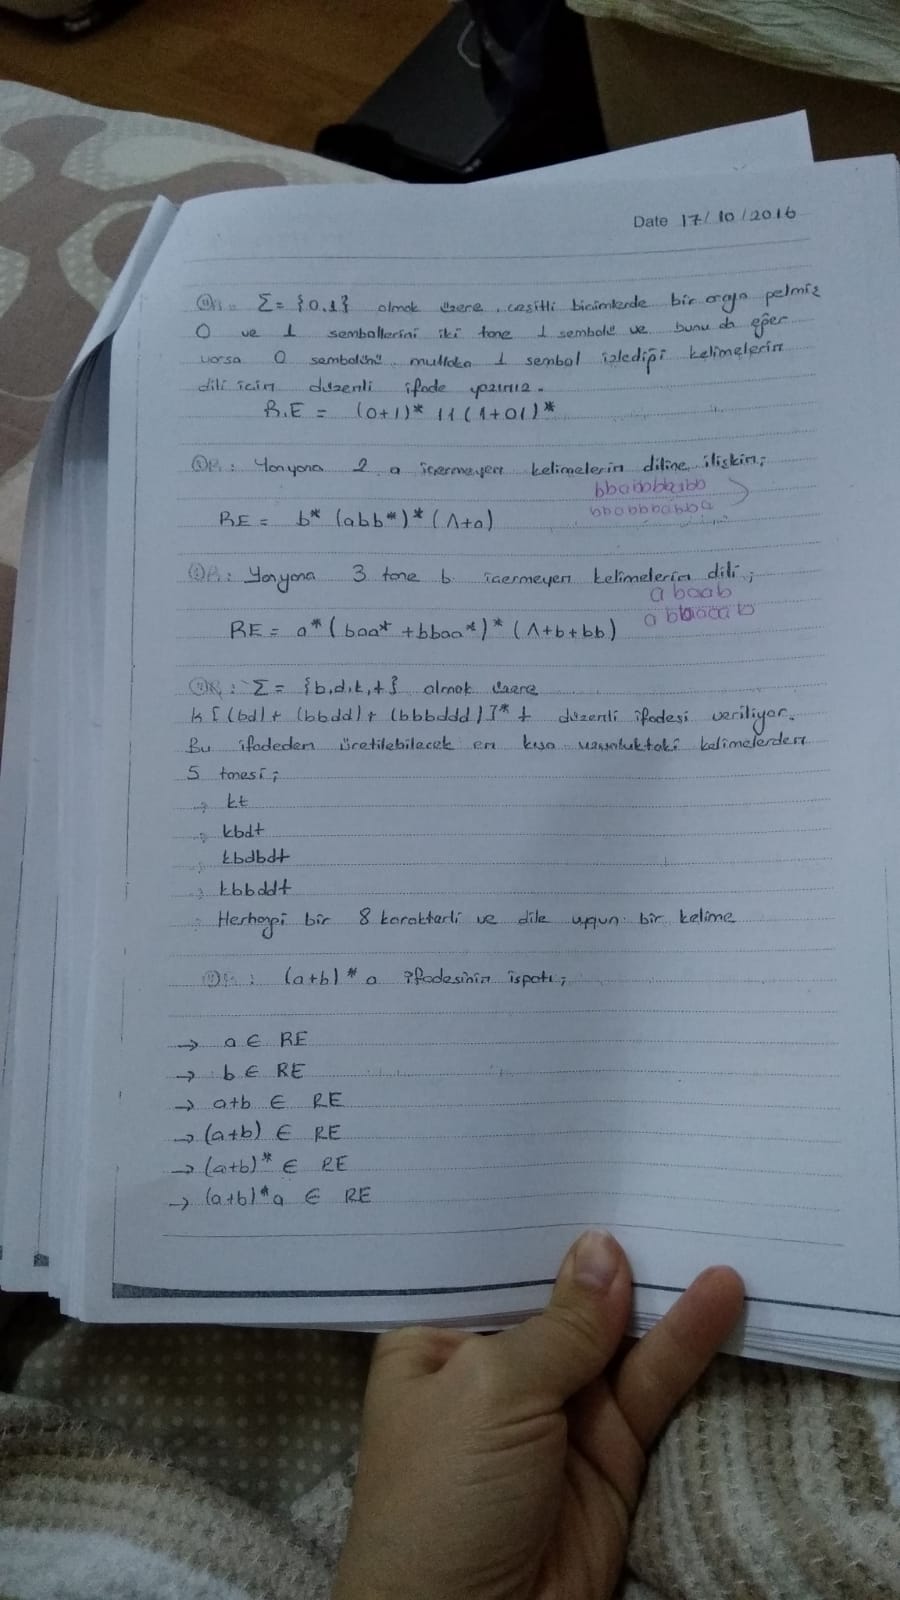 Date 17/10/2016
Ör: Σ = {0,1} olmak üzere çeşitli biçimlerde bir araya gelmiş
0 ve 1 sembollerini iki tane 1 sembolü ve bunu da eğer
varsa 0 sembolünü mutlaka 1 sembol izlediği kelimelerin
dili için düzenli ifade yazınız.
R.E = (0+1)* 11(1+01)*
Ör: Yanyana 2 a içermeyen kelimelerin diline ilişkin;
RE = b* (abb*)* (Λ+a)
Ör: Yanyana 3 tane b içermeyen kelimelerin dili;
abaab
RE = a* (baa* + bbaa*)* (Λ+b+bb)
Ör: Σ = {b,d,k,t} olmak üzere
k [(bd)+(bbdd)+(bbbddd)]* t düzenli ifadesi veriliyor.
Bu ifadeden üretilebilecek en kısa uzunluktaki kelimelerden
5 tanesi;
→ kt
→ kbdt
→ kbdbdt
→ kbbddt
→ Herhangi bir 8 karakterli ve dile uygun bir kelime
Ör: (a+b)* a ifadesinin ispatı;
→ a ∈ RE
→ b ∈ RE
→ a+b ∈ RE
→ (a+b) ∈ RE
→ (a+b)* ∈ RE
→ (a+b)*a ∈ RE